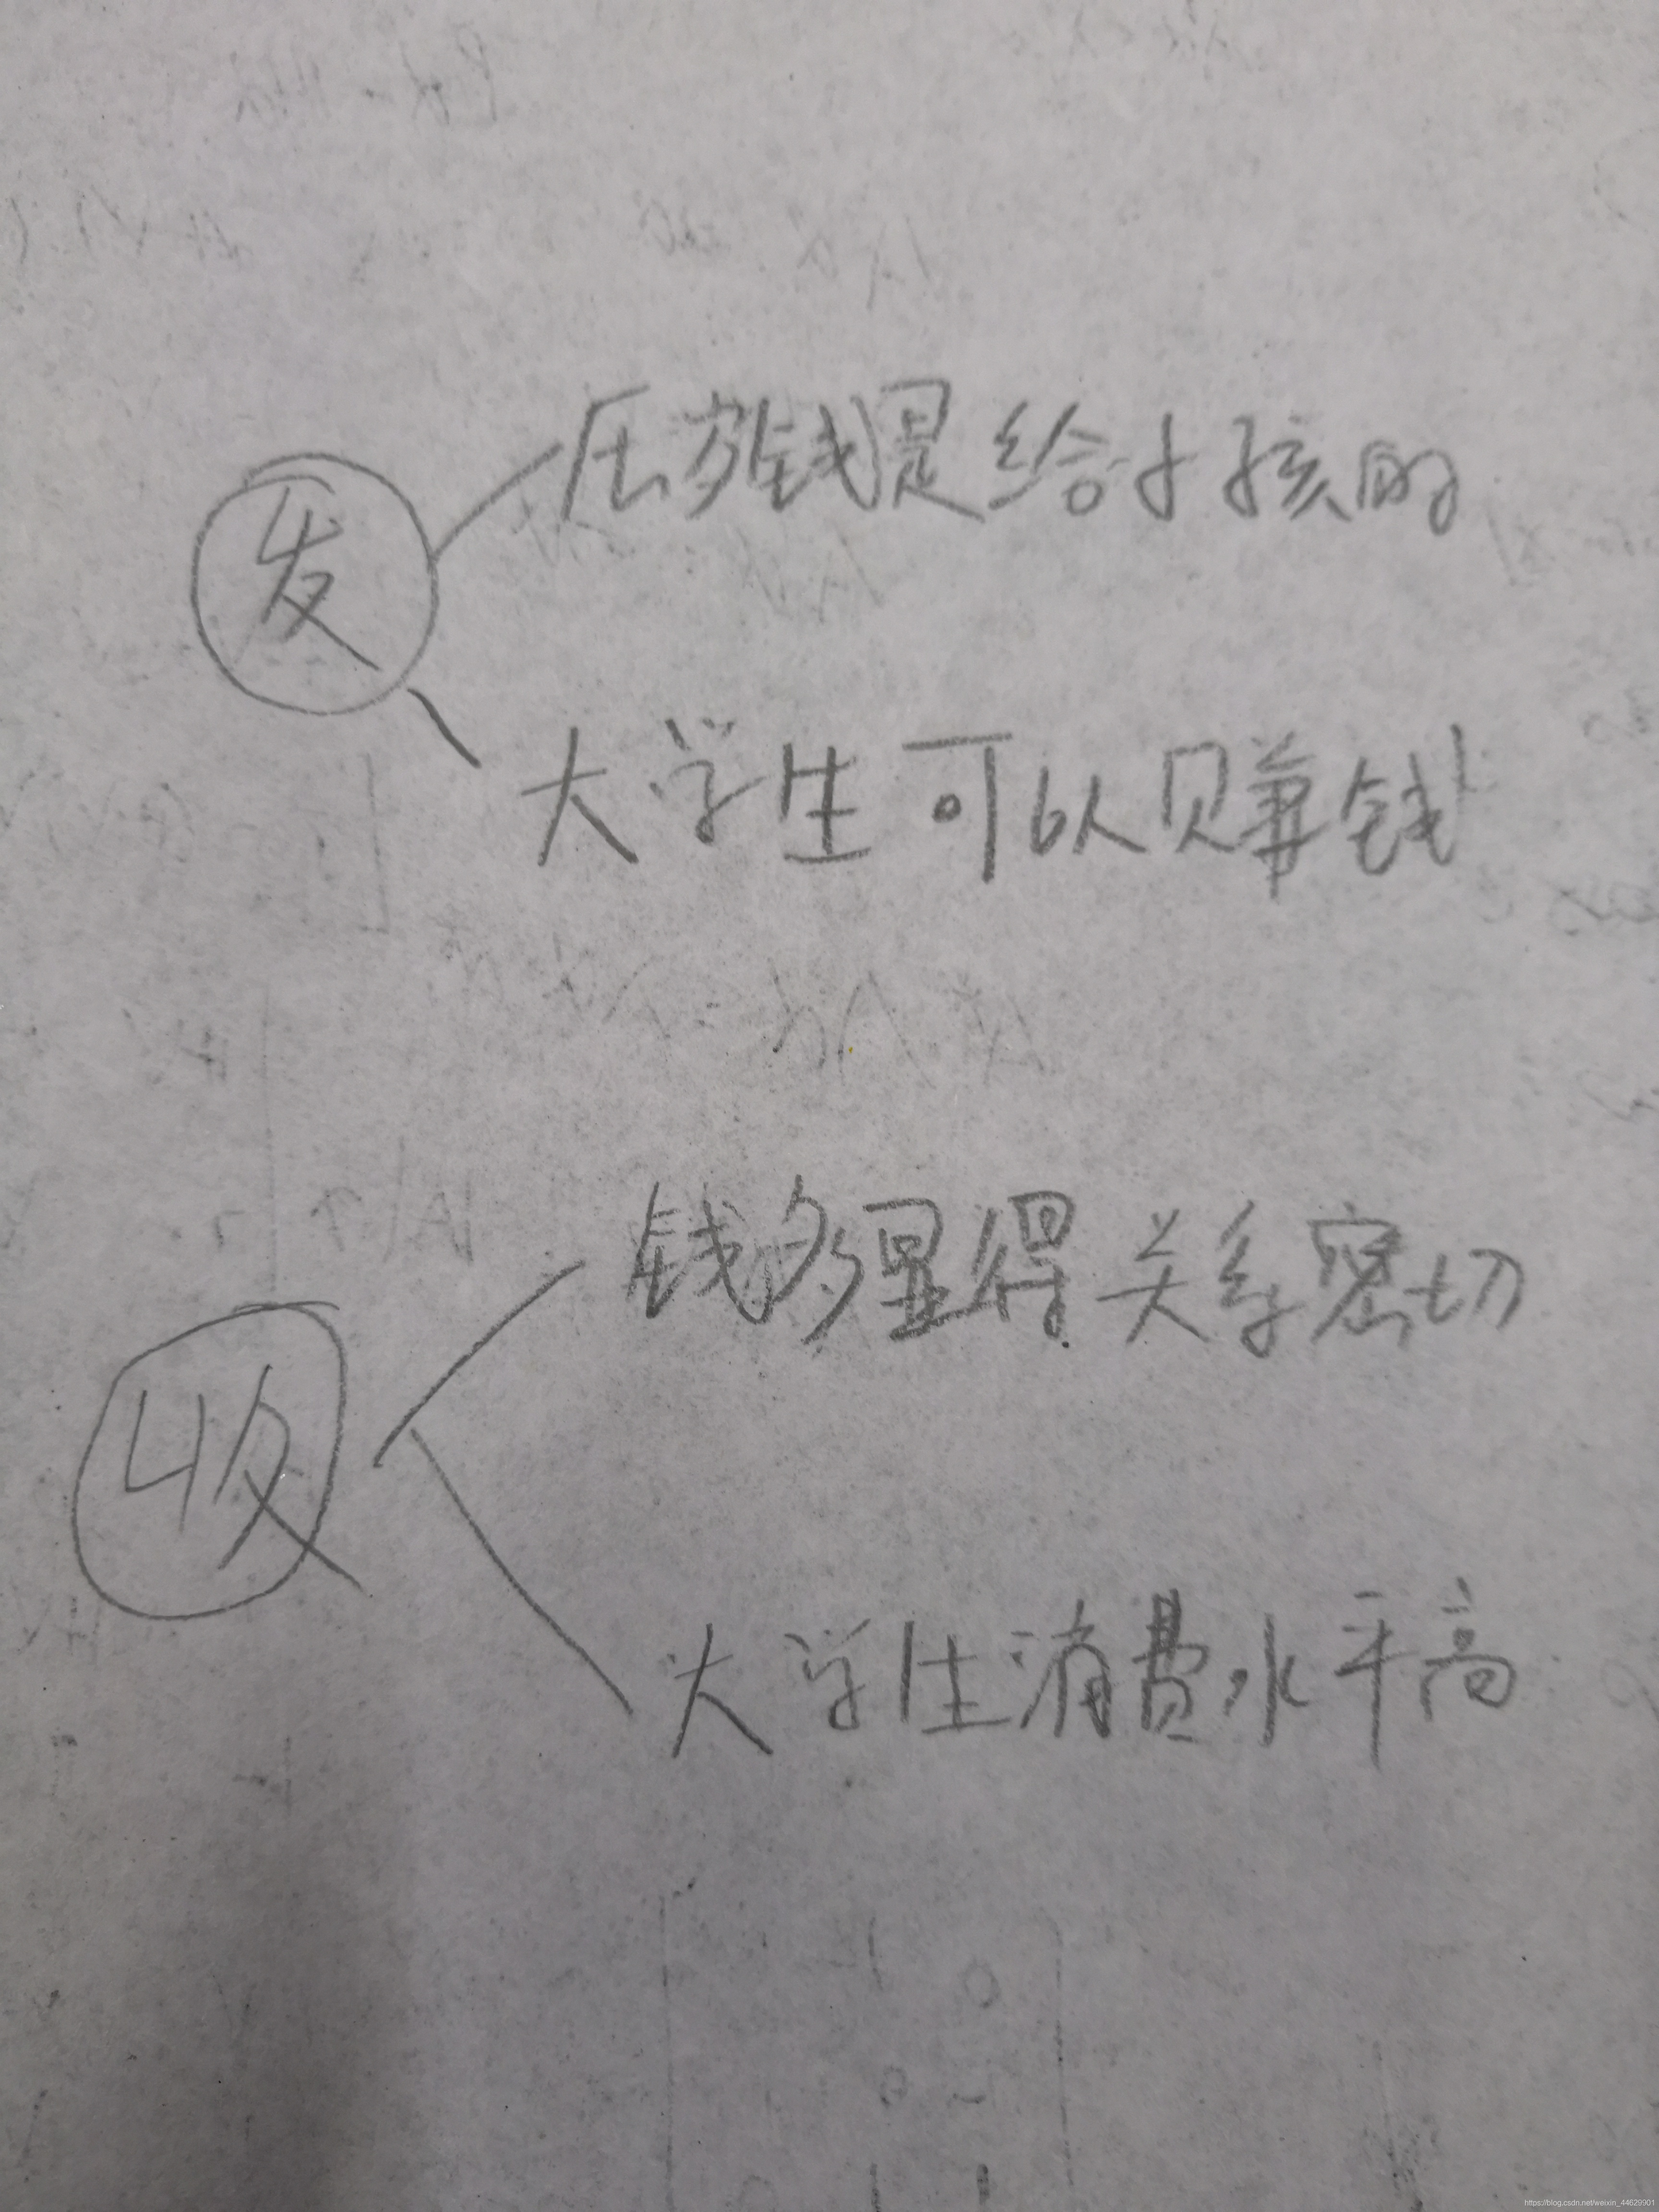 发
压岁钱是给小孩的
大学生可以赚钱
收
钱多显得关系密切
大学生消费水平高
https://blog.csdn.net/weixin_44629901